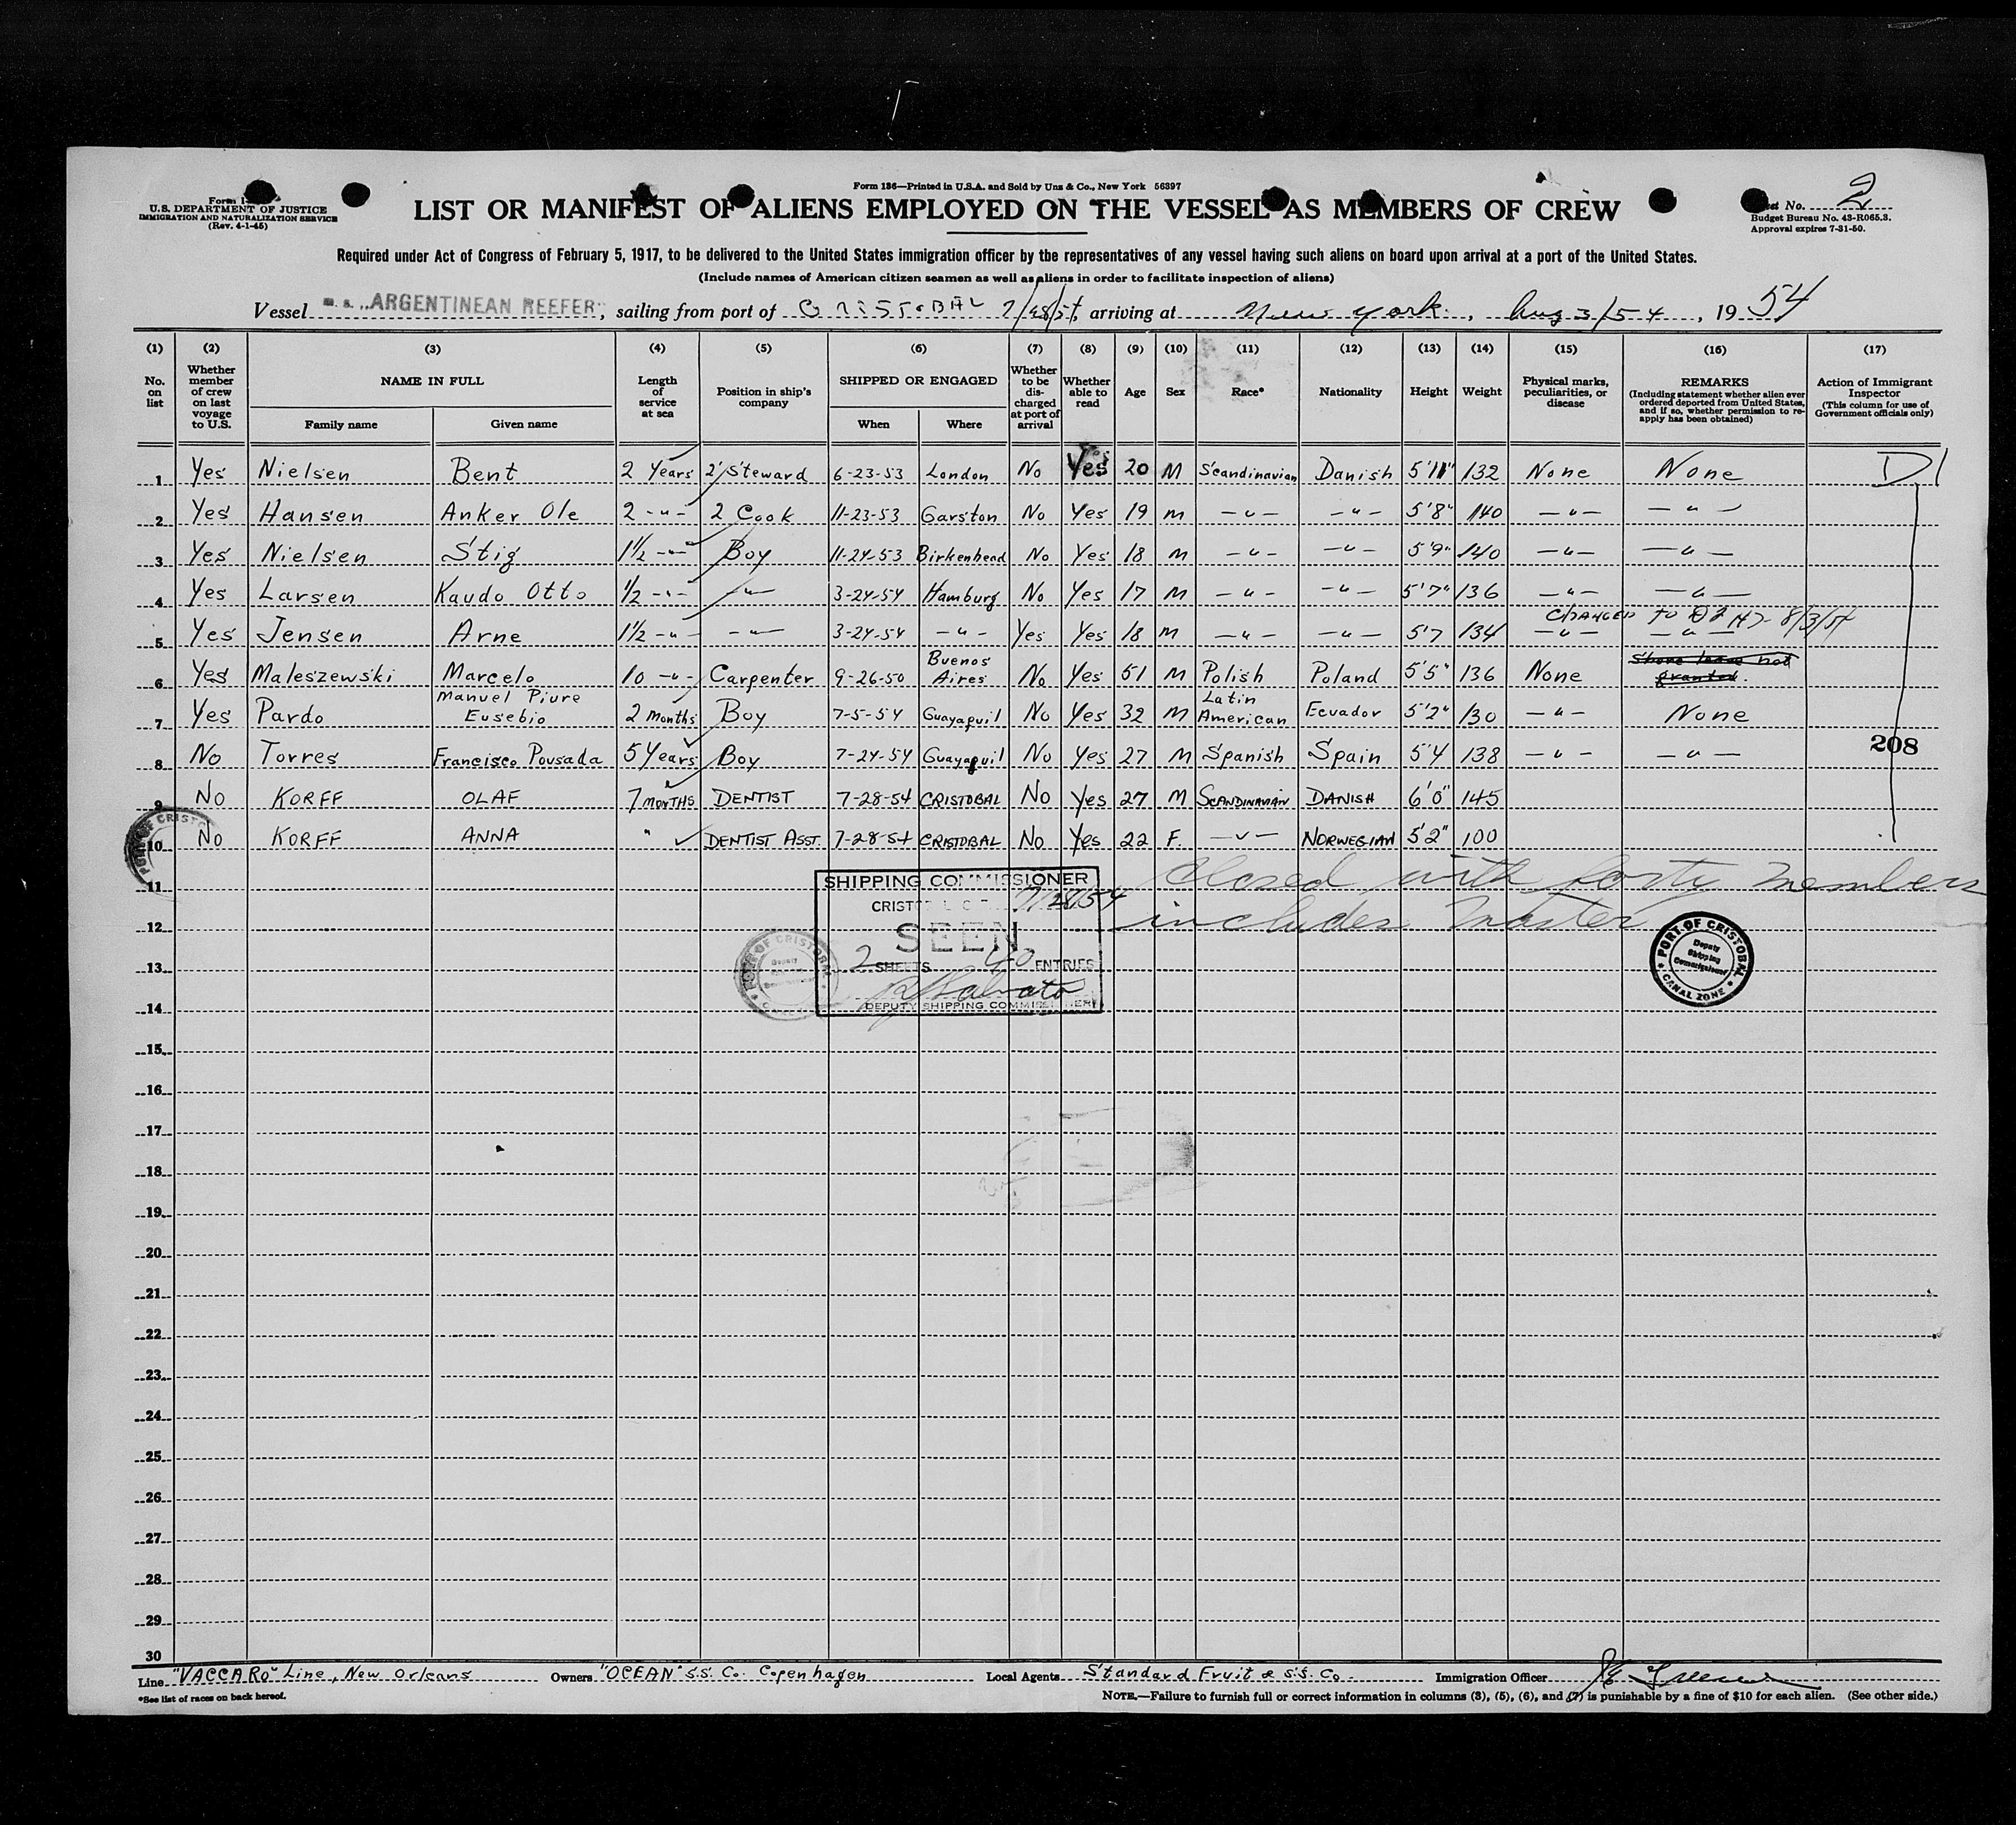 Form 136—Printed in U.S.A. and Sold by Unz & Co., New York 56397
Form I-
U.S. DEPARTMENT OF JUSTICE
IMMIGRATION AND NATURALIZATION SERVICE
(Rev. 4-1-45)
LIST OR MANIFEST OF ALIENS EMPLOYED ON THE VESSEL AS MEMBERS OF CREW
Sheet No. 2
Budget Bureau No. 43-R065.3.
Approval expires 7-31-50.
Required under Act of Congress of February 5, 1917, to be delivered to the United States immigration officer by the representatives of any vessel having such aliens on board upon arrival at a port of the United States.
(Include names of American citizen seamen as well as aliens in order to facilitate inspection of aliens)
Vessel m. s. „ARGENTINEAN REEFER", sailing from port of CRISTOBAL 7/28/54, arriving at New York, Aug 3/54, 1954
(1) (2) (3) (4) (5) (6) (7) (8) (9) (10) (11) (12) (13) (14) (15) (16) (17)
No. on list
Whether member of crew on last voyage to U.S.
NAME IN FULL
Family name
Given name
Length of service at sea
Position in ship's company
SHIPPED OR ENGAGED
When
Where
Whether to be discharged at port of arrival
Whether able to read
Age
Sex
Race*
Nationality
Height
Weight
Physical marks, peculiarities, or disease
REMARKS
(Including statement whether alien ever ordered deported from United States, and if so, whether permission to reapply has been obtained)
Action of Immigrant Inspector
(This column for use of Government officials only)
1 Yes Nielsen Bent 2 Years 2' Steward 6-23-53 London No Yes 20 M Scandinavian Danish 5'11" 132 None None D1
2 Yes Hansen Anker Ole 2 -"- 2 Cook 11-23-53 Garston No Yes 19 M -"- -"- 5'8" 140 -"- -"-
3 Yes Nielsen Stig 1½ -"- Boy 11-24-53 Birkenhead No Yes 18 M -"- -"- 5'9" 140 -"- -"-
4 Yes Larsen Kaudo Otto ½ -"- -"- 3-24-54 Hamburg No Yes 17 M -"- -"- 5'7" 136 -"- -"-
CHANGED TO D2 8/3/54
5 Yes Jensen Arne 1½ -"- -"- 3-24-54 -"- Yes Yes 18 M -"- -"- 5'7 134 -"- -"-
6 Yes Maleszewski Marcelo 10 -"- Carpenter 9-26-50 Buenos Aires No Yes 51 M Polish Poland 5'5" 136 None Shore leave not granted.
7 Yes Pardo Manuel Piure Eusebio 2 months Boy 7-5-54 Guayaquil No Yes 32 M Latin American Ecuador 5'2" 130 -"- None
8 No Torres Francisco Pousada 5 Years Boy 7-24-54 Guayaquil No Yes 27 M Spanish Spain 5'4 138 -"- -"- 208
9 No KORFF OLAF 7 MONTHS DENTIST 7-28-54 CRISTOBAL No Yes 27 M SCANDINAVIAN DANISH 6'0" 145
10 No KORFF ANNA " DENTIST ASST. 7-28-54 CRISTOBAL No Yes 22 F. -"- NORWEGIAN 5'2" 100
11 Closed with forty members
12 includes Master
13
14
15
16
17
18
19
20
21
22
23
24
25
26
27
28
29
30
SHIPPING COMMISSIONER
CRISTOBAL C.Z. 7/28/54
SEEN
2 SHEETS 40 ENTRIES
DEPUTY SHIPPING COMMISSIONER
PORT OF CRISTOBAL
Deputy Shipping Commissioner
CANAL ZONE
Line "VACCARO" Line, New Orleans Owners "OCEAN" S.S. Co. Copenhagen Local Agents Standard Fruit & S.S. Co. Immigration Officer
*See list of races on back hereof.
NOTE.—Failure to furnish full or correct information in columns (3), (5), (6), and (7) is punishable by a fine of $10 for each alien. (See other side.)